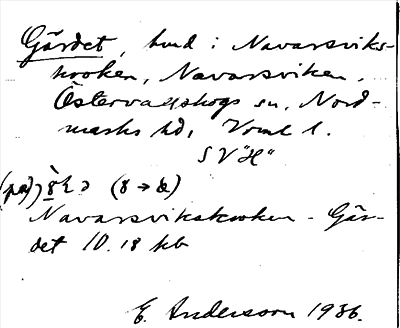 Gärdet, hmd i Navarsviks-
kroken, Navarsviken,
Östervallskogs sn, Nord-
marks hd, Vrml l.
SV "H"
(på)
Navarsvikskroken - Gär-
det 10.18 kb
E. Andersson 1936.